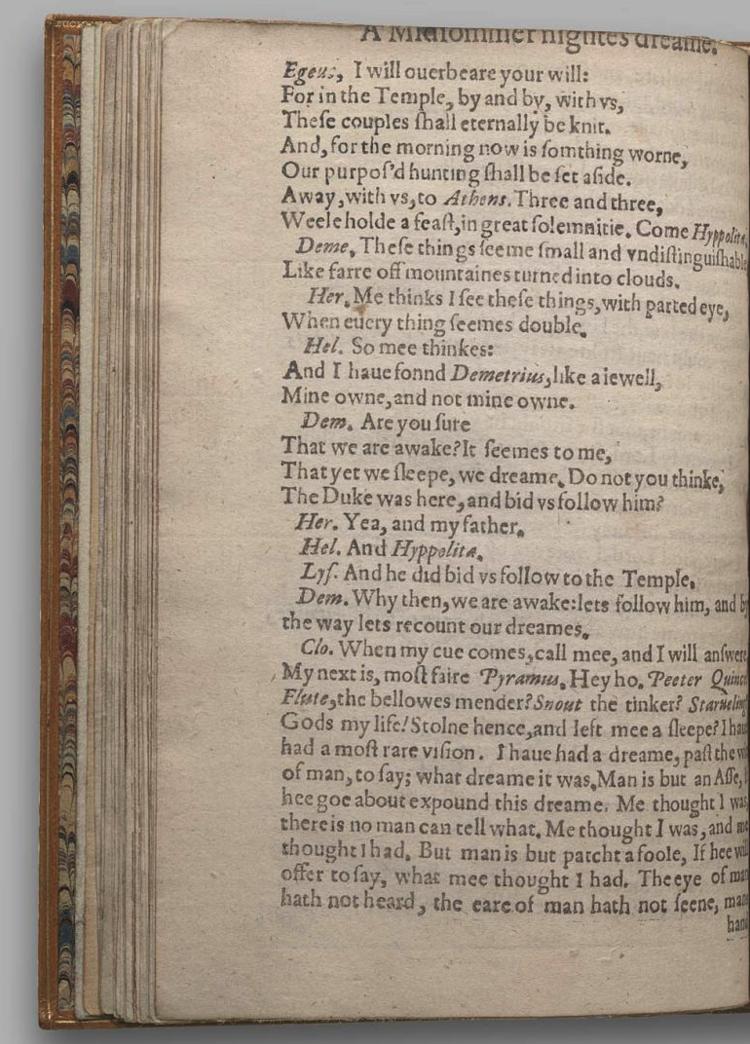 A Midſommer nightes dreame.
Egeus, I will ouerbeare your will:
For in the Temple, by and by, with vs,
Theſe couples ſhall eternally be knit.
And, for the morning now is ſomthing worne,
Our purpoſ'd hunting ſhall be ſet aſide.
Away, with vs, to Athens. Three and three,
Weele holde a feaſt, in great ſolemnitie. Come Hyppolita,
Deme. Theſe things ſeeme ſmall and vndiſtinguiſhable
Like farre off mountaines turned into clouds.
Her. Me thinks I ſee theſe things, with parted eye,
When euery thing ſeemes double.
Hel. So mee thinkes:
And I haue fonnd Demetrius, like a iewell,
Mine owne, and not mine owne.
Dem. Are you ſure
That we are awake? It ſeemes to me,
That yet we ſleepe, we dreame. Do not you thinke,
The Duke was here, and bid vs follow him?
Her. Yea, and my father.
Hel. And Hyppolita.
Lyſ. And he did bid vs follow to the Temple.
Dem. Why then, we are awake: lets follow him, and by
the way lets recount our dreames.
Clo. When my cue comes, call mee, and I will anſwere
My next is, moſt faire Pyramus. Hey ho. Peeter Quince
Flute, the bellowes mender? Snout the tinker? Starueling
Gods my life! Stolne hence, and left mee a ſleepe? I haue
had a moſt rare viſion. I haue had a dreame, paſt the wit
of man, to ſay; what dreame it was. Man is but an Aſſe,
hee goe about expound this dreame. Me thought I was,
there is no man can tell what. Me thought I was, and me
thought I had. But man is but patcht a foole, If hee will
offer to ſay, what mee thought I had. The eye of man
hath not heard, the eare of man hath not ſeene, mans
hand